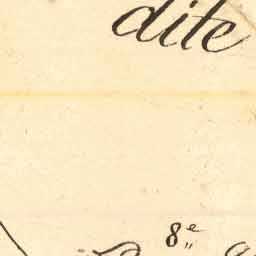 dite
8e